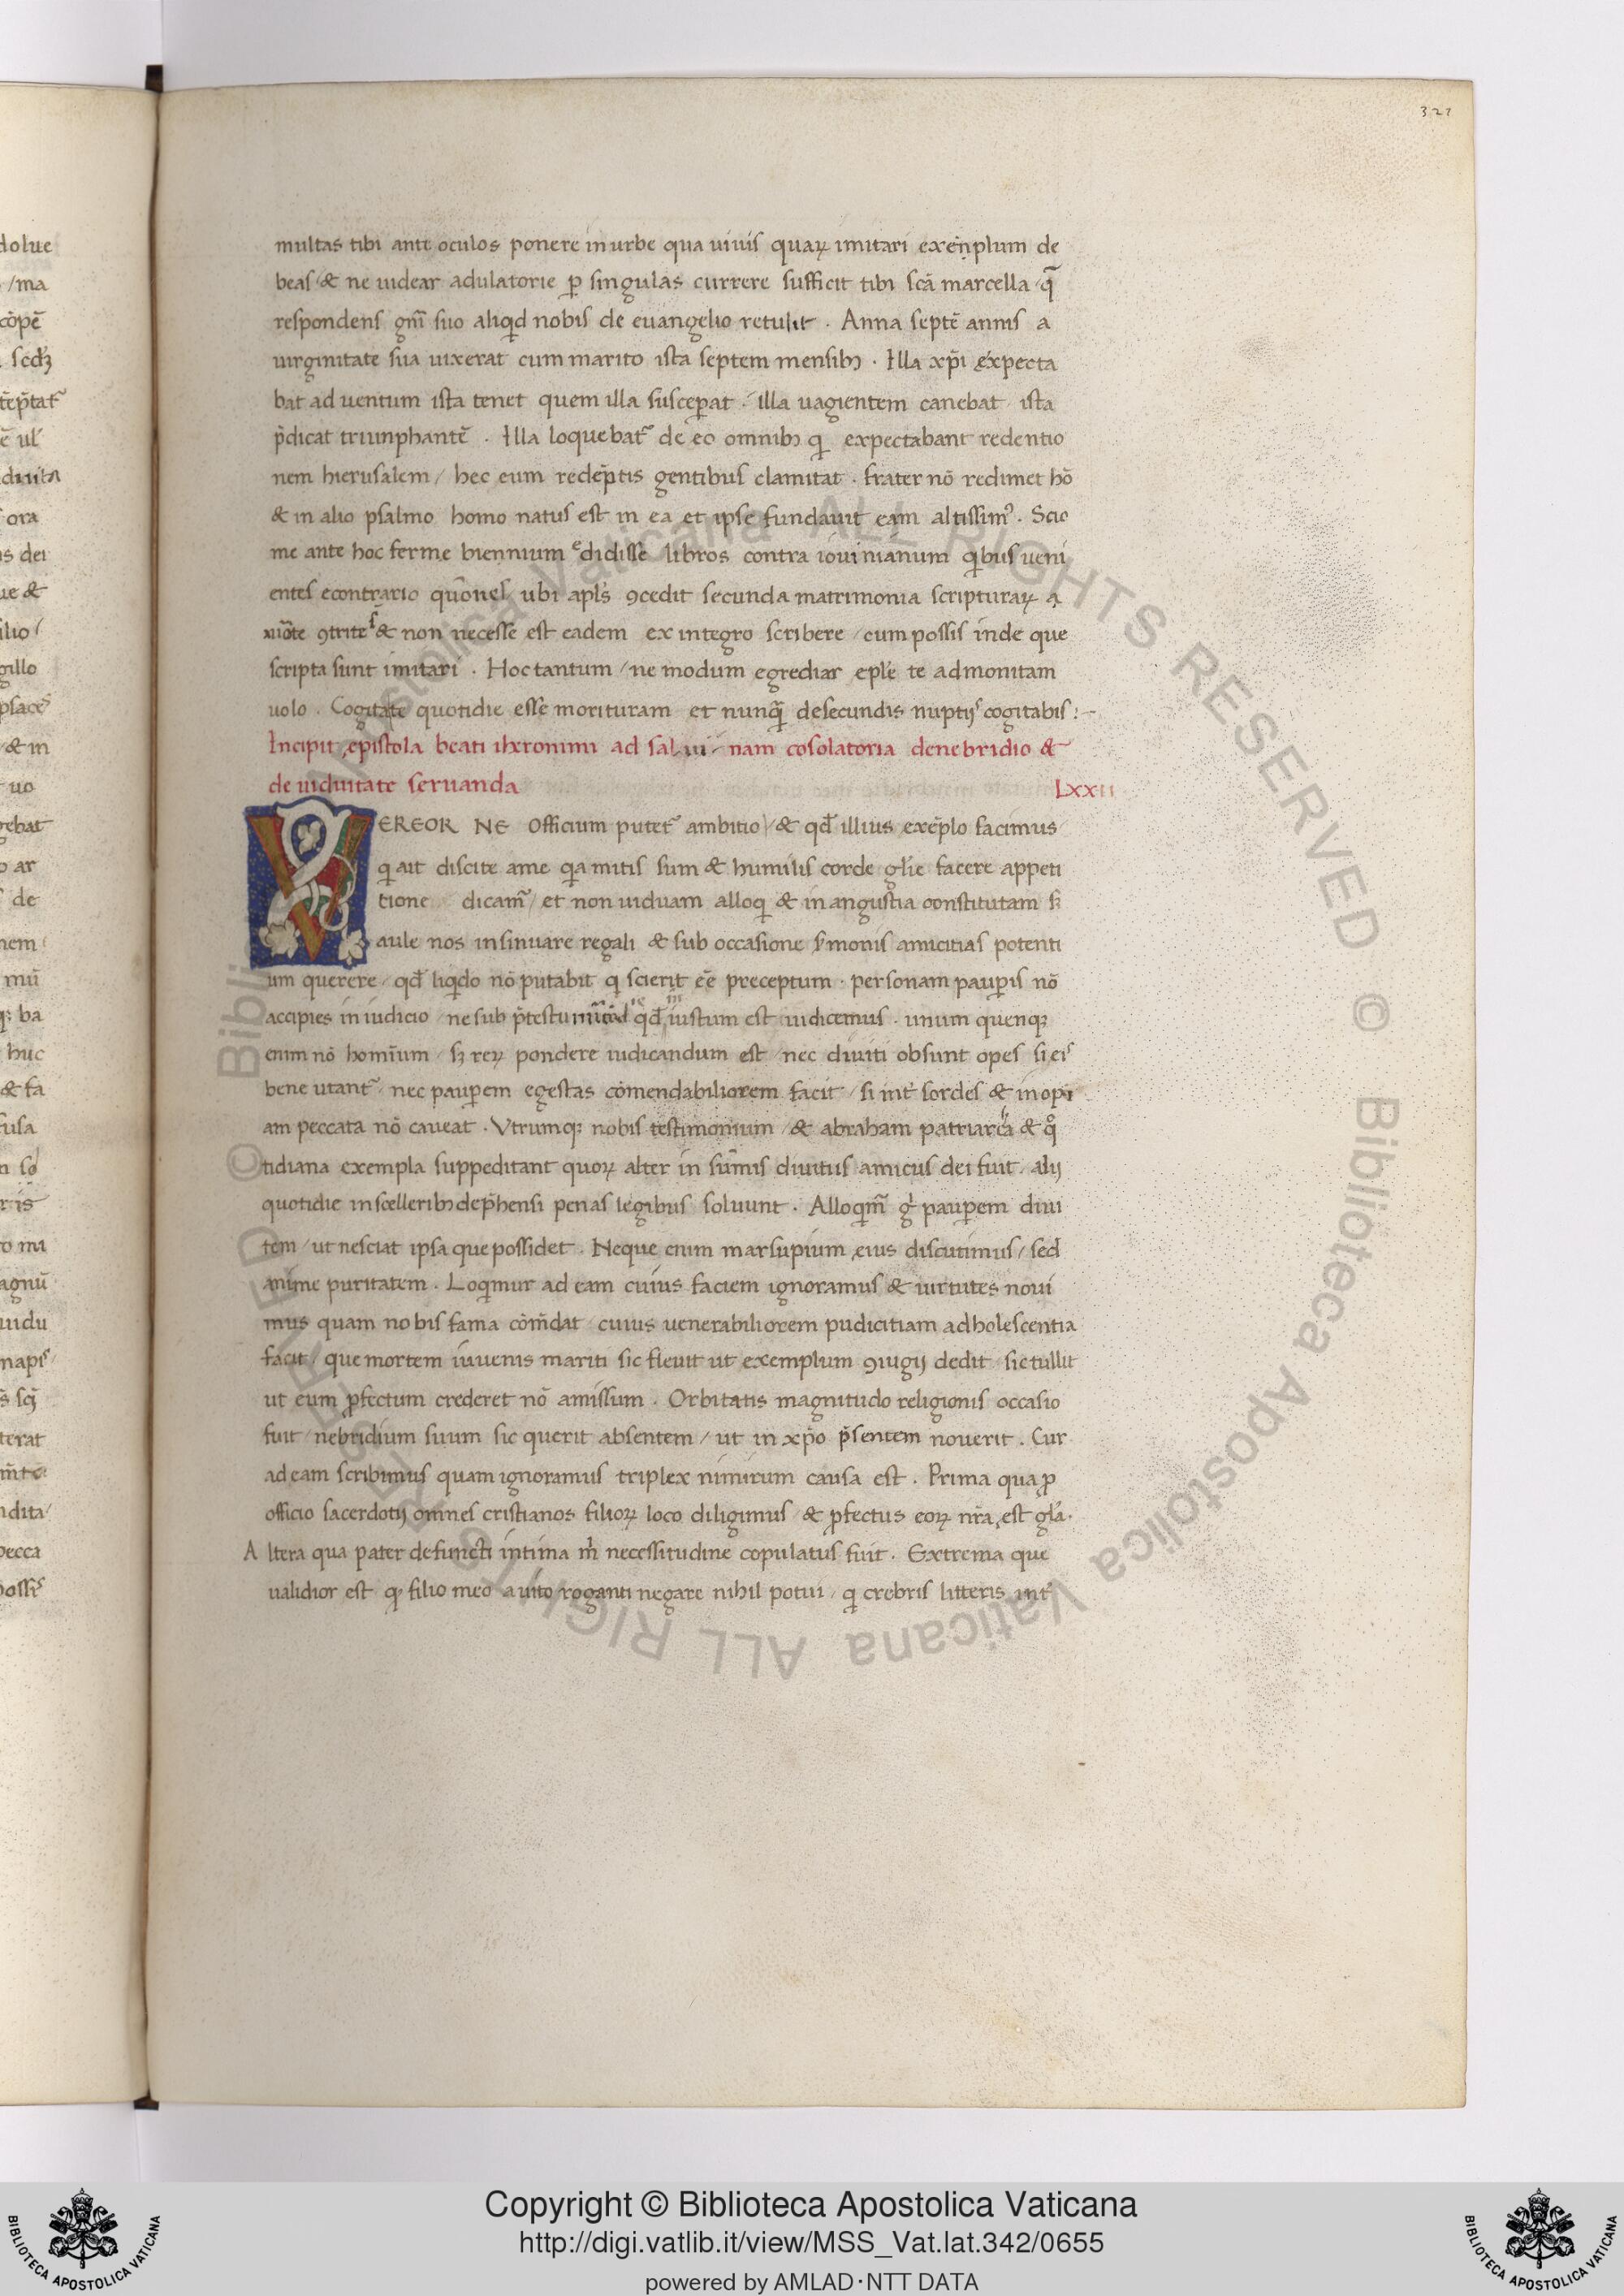 321
multas tibi ante oculos ponere in urbe qua uiuis quaꝝ imitari exenplum de
beas / & ne uidear adulatorie ꝑ singulas currere sufficit tibi scā marcella / q̄
respondens gn̄i suo aliqid nobis de euangelio retulit . Anna septē annis a
uirginitate sua uixerat cum marito ista septem mensibꝫ . Illa xp̄i expecta
bat ad uentum ista tenet quem illa susceꝑat . illa uagientem canebat / ista
p̄dicat triunphantē . Illa loquebat᷑ de eo omnibꝫ qi expectabant redentio
nem hierusalem / hec eum redēptis gentibus clamitat . frater nō redimet hō
& in alio psalmo homo natus est in ea et ipse fundauit eam altissimꝰ . Scio
me ante hoc ferme biennium edidisse libros contra iouinianum qibus ueni
entes econtrario qūones ubi apl's ꝯcedit secunda matrimonia scripturaꝝ a
ꝯtrite & non necesse est eadem ex integro scribere / cum possis inde que
scripta sunt imitari . Hoc tantum / ne modum egrediar epl'e te admonitam
uolo . Cogitate quotidie esse morituram et nunq̄ de secundis nuptijs cogitabis :~
Incipit epistola beati iheronimi ad salui / nam cosolatoria de nebridio &
de uiduitate seruanda LXXII
VEREOR NE Officium putet᷑ ambitio / & qd̄ illius exēplo facimus /
qi ait discite ame qia mitis sum & humilis corde gl'ie facere appeti
tione dicam᷑ / et non uiduam alloqi & in angustia constitutam sꝫ
aule nos insinuare regali & sub occasione s'monis amicitias potenti
um querere / qd̄ liqido nō putabit qi scierit ēē preceptum . personam pauꝑis nō
accipies in iudicio / ne sub p̄testu qd̄ iustum est iudicemus . unum quenqꝫ
enim nō hominum / sꝫ reꝝ pondere iudicandum est / nec diuiti obsunt opes si eis
bene utant᷑ / nec pauꝑem egestas cōmendabiliorem facit / si int' sordes & inopi
am peccata nō caueat . Vtrumqꝫ nobis testimonium / & abraham patriarcha & qͦ
tidiana exempla suppeditant quoꝝ alter in sūmis diuitiis amicus dei fuit / alij
quotidie in scelleribꝫ dep̄hensi penas legibus soluunt . Alloqim᷑ g' pauꝑem diui
tem / ut nesciat ipsa que possidet . Neque enim marsupium eius discutimus / sed
anime puritatem . Loqimur ad eam cuius faciem ignoramus & uirtutes noui
mus quam nobis fama cōm̄dat / cuius uenerabiliorem pudicitiam adholescentia
facit / que mortem iuuenis mariti sic fleuit ut exemplum ꝯiugij dedit / sic tullit
ut eum ꝓfectum crederet nō amissum . Orbitatis magnitudo religionis occasio
fuit / nebridium suum sic querit absentem / ut in xp̄o p̄sentem nouerit . Cur
ad eam scribimus quam ignoramus triplex nimirum causa est . Prima qua ꝓ
officio sacerdotij omnes cristianos filioꝝ loco diligimus / & ꝓfectus eoꝝ nr̄a est gl'a .
Altera qua pater defuncti intima m' necessitudine copulatus fuit . Extrema que
ualidior est qꝫ filio meo auito roganti negare nihil potui / qi crebris litteris int'
Copyright © Biblioteca Apostolica Vaticana
http://digi.vatlib.it/view/MSS_Vat.lat.342/0655
powered by AMLAD·NTT DATA